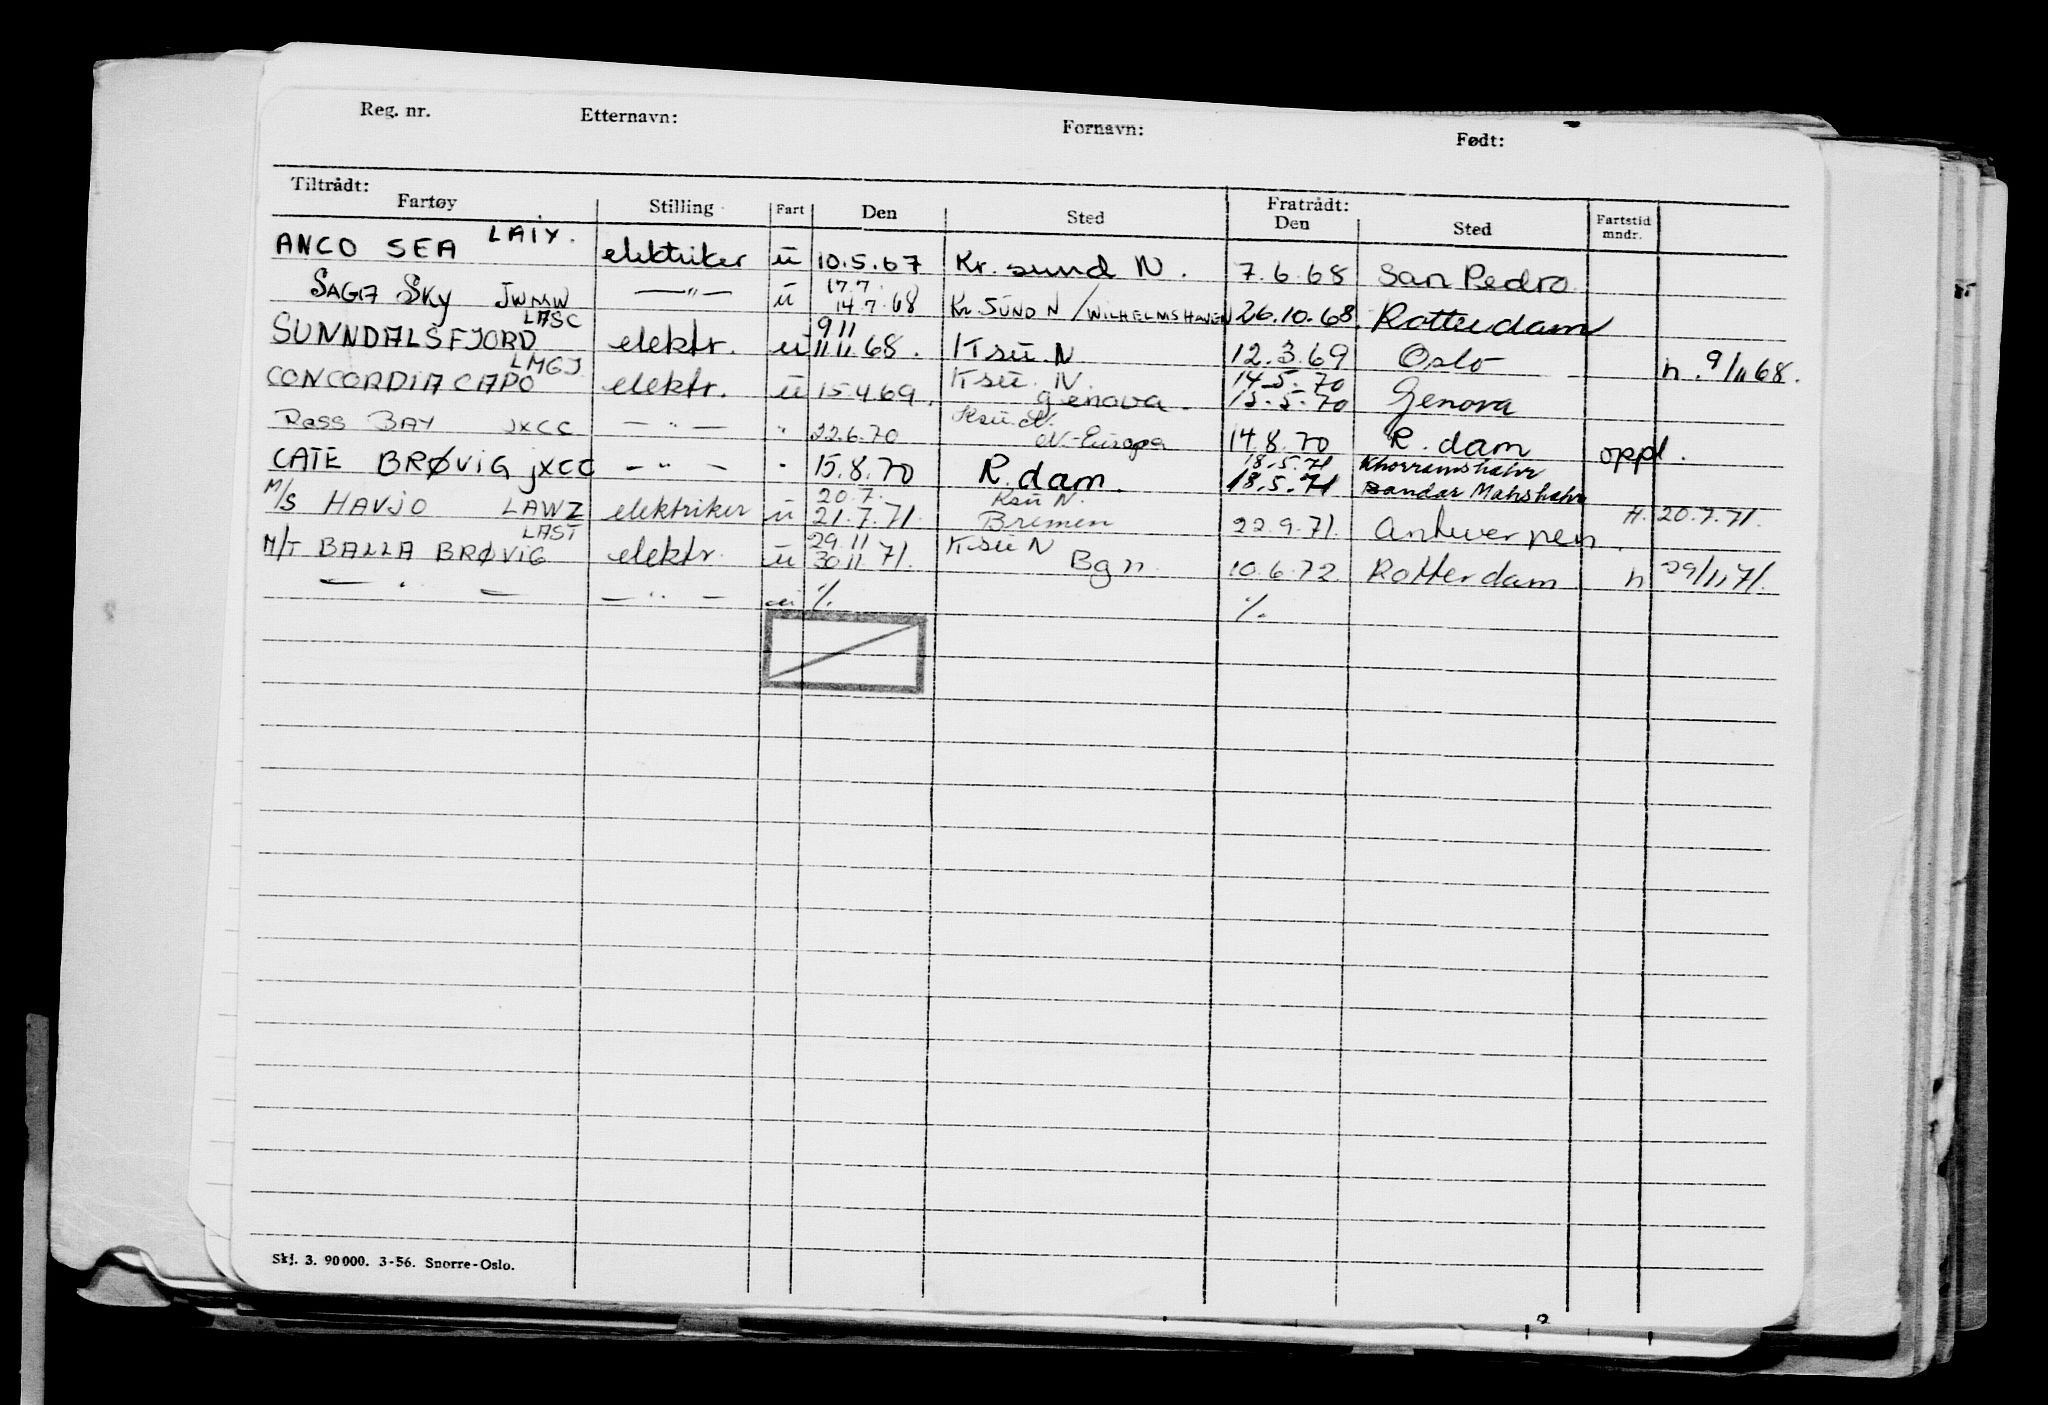 Reg. nr. Etternavn: Fornavn: Født:
Tiltrådt: Fratrådt:
Fartøy Stilling Fart Den Sted Den Sted Fartstid mndr.
ANCO SEA LAIY. elektriker ü 10.5.67 Kr. sund N. 7.6.68 San Pedro
17.7
SAGA SKY JWMW —"— ü 14.7.68 Kr. SUND N / WILHELMSHAVEN 26.10.68. Rotterdam
LASC 9 11
SUNNDALSFJORD elektr. ü 11 11 68. Ksü. N 12.3.69 Oslo n. 9/11 68.
LMGJ Ksü. N. 14.5.70
CONCORDIA CAPO elektr. ü 15.4.69. Genova. 15.5.70 Genova
Ksü. N.
Ross BAY JXCC —"— " 22.6.70 N-Europa 14.8.70 R.dam oppl.
18.5.71 Khorramshahr
CATE BRØVIG JXCC —"— " 15.8.70 R.dam. 18.5.71 Bandar Mahshahr
20.7. Ksü N.
M/S HAVJO LAWZ elektriker ü 21.7.71. Bremen 22.9.71. Antwerpen. H. 20.7.71.
LAST 29 11 Ksü N
M/T BALLA BRØVIG elektr. ü 30 11 71. Bgn. 10.6.72 Rotterdam n 29/11 71.
— " — — " — ü %. %.
Skj. 3. 90 000. 3-56. Snorre-Oslo.
2